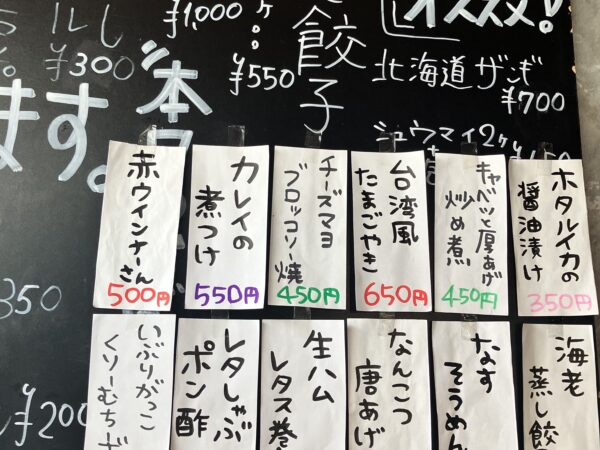 オススメ!
¥1,000
餃子
¥550
北海道ザンギ
¥700
¥300
本日
ます。
シュウマイ2ヶ
ホタルイカの
醤油漬け
350円
キャベツと厚あげ
炒め煮
450円
台湾風
たまごやき
650円
チーズマヨ
ブロッコリー焼
450円
カレイの
煮つけ
550円
赤ウインナーさん
500円
350
¥200
海老
蒸し餃
なす
そうめん
なんこつ
唐あげ
生ハム
レタス巻
レタしゃぶ
ポン酢
いぶりがっこ
くりーむちーず